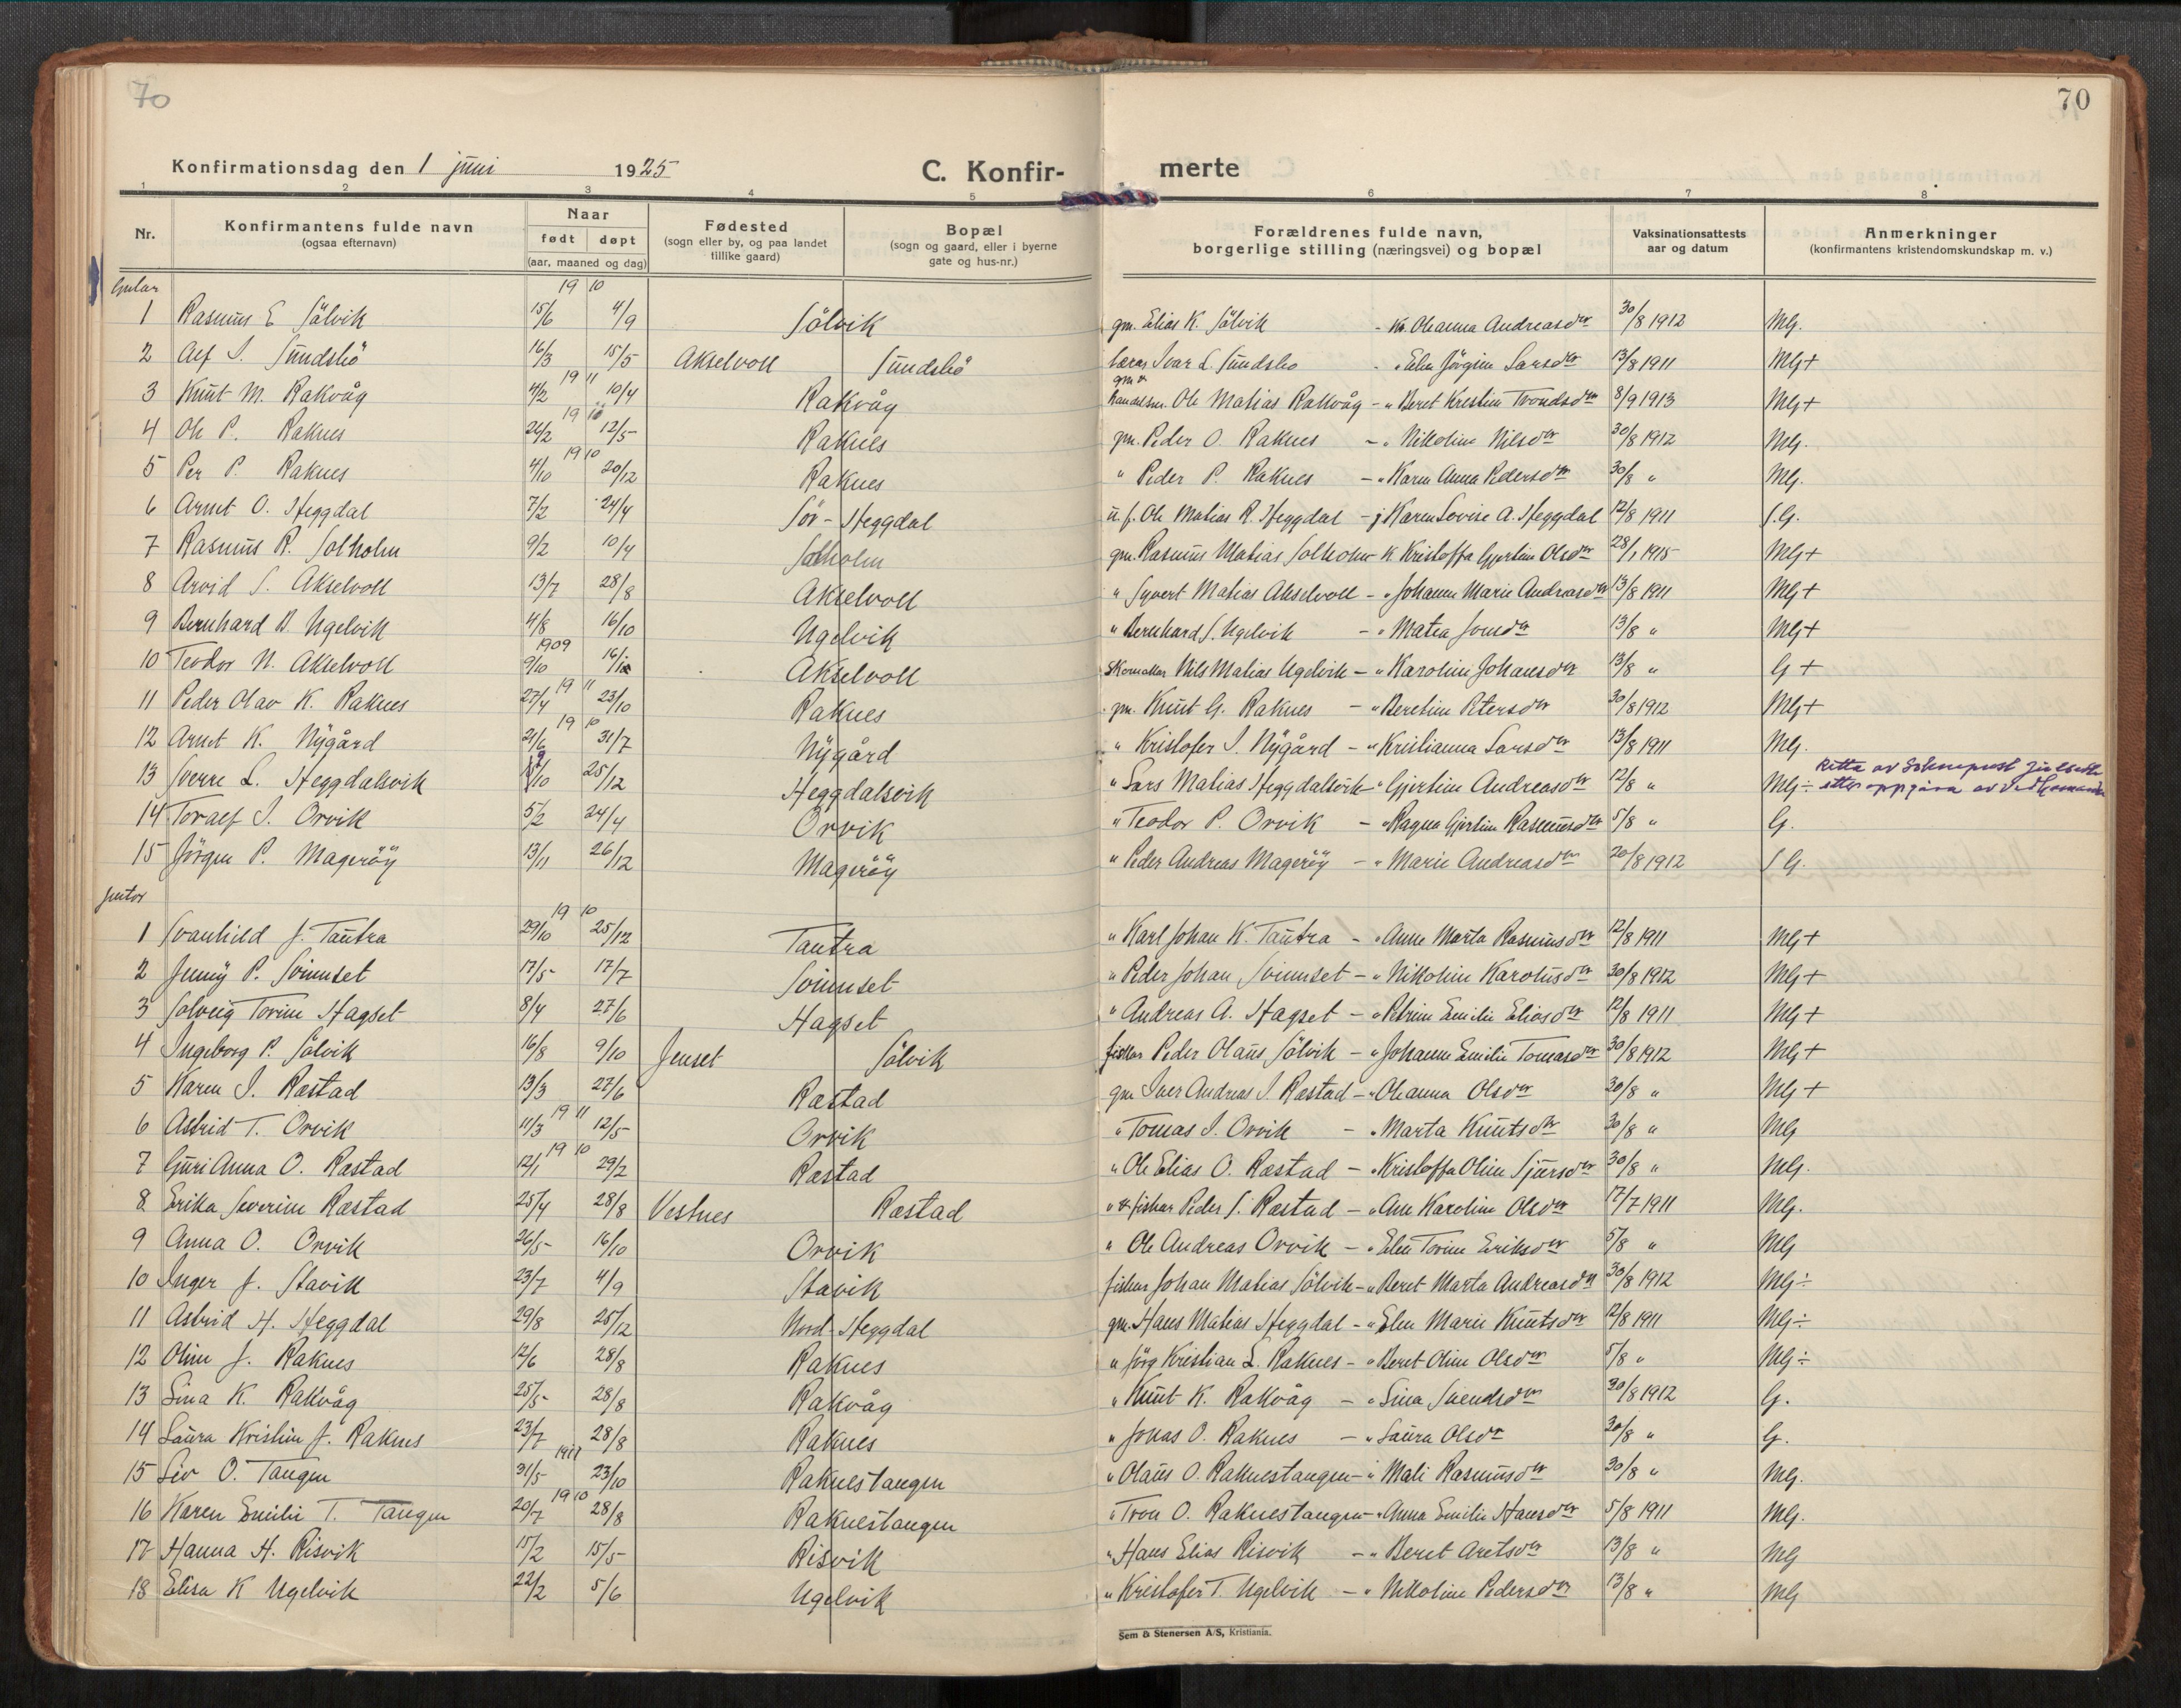 70
70
Konfirmationsdag den 1 juni 1925 C. Konfir- merte
1 2 3 4 5 6 7 8
Nr. Konfirmantens fulde navn (ogsaa efternavn) Naar født døpt (aar, maaned og dag) Fødested (sogn eller by, og paa landet tillike gaard) Bopæl (sogn og gaard, eller i byerne gate og hus-nr.) Forældrenes fulde navn, borgerlige stilling (næringsvei) og bopæl Vaksinationsattests aar og datum Anmerkninger (konfirmantens kristendomskundskap m. v.)
Gutar 19 10
1 Rasmus E Sölvik 15/6 4/9 Sölvik gm. Elias K. Sölvik - K. Oleanna Andreasdtr 30/8 1912 Mg.
2 Alf I. Sundsbö 16/3 15/5 Akselvoll Sundsbö lærar Ivar L. Sundsbö - " Elen Jörgine Larsdtr 13/8 1911 Mg+
19 11
3 Knut M. Rakvåg 4/2 10/4 Rakvåg gm & handelsm. Ole Matias Rakvåg - " Beret Kristine Trondsdtr 8/9 1913 Mg+
19 10
4 Ole P. Raknes 26/2 12/5 Raknes gm. Peder O. Raknes - " Nikoline Nilsdtr 30/8 1912 Mg.
19 10
5 Per P. Raknes 4/10 20/12 Raknes " Peder P. Raknes - " Karen Anna Pedersdtr 30/8 " Mg.
6 Arnet O. Heggdal 7/2 24/4 Sör-Heggdal u. f. Ole Matias R. Heggdal - j Karen Lovise A. Heggdal 12/8 1911 S.G.
7 Rasmus R. Solholm 9/2 10/4 Solholm gm. Rasmus Matias Solholm - K. Kristoffa Gjertine Olsdtr 28/1 1915 Mg+
8 Arvid S. Akselvoll 13/7 28/8 Akselvoll " Syvert Matias Akselvoll - " Johanne Marie Andreasdtr 13/8 1911 Mg+
9 Bernhard B. Ugelvik 4/8 16/10 Ugelvik " Bernhard S. Ugelvik - " Matea Jonsdtr 13/8 " Mg+
1909
10 Teodor N. Akselvoll 9/10 16/1 Akselvoll Skomakar Nils Matias Ugelvik - " Karoline Johansdtr 13/8 " G +
19 11
11 Peder Olav K. Raknes 27/4 23/10 Raknes gm. Knut G. Raknes - " Beretine Petersdtr 30/8 1912 Mg+
19 10
12 Arnet K. Nygård 21/6 31/7 Nygård " Kristofer I. Nygård - " Kristianna Larsdtr 13/8 1911 Mg.
13 Sverre L. Heggdalsvik /10 25/12 Heggdalsvik " Lars Matias Heggdalsvik - " Gjertine Andreasdtr 12/8 " Mg÷ Retta av Sokneprest Julseth etter oppgåva av
14 Toralf T. Orvik 5/2 24/4 Orvik " Teodor P. Orvik - " Ragna Gjertine Rasmusdtr 5/8 " G.
15 Jörgen P. Mageröy 13/11 26/12 Mageröy " Peder Andreas Mageröy - " Marie Andreasdtr 20/8 1912 S G.
Jentor
19 10
1 Svanhild J. Tautra 29/10 25/12 Tautra " Karl Johan K. Tautra - " Anne Marta Rasmusdtr 12/8 1911 Mg+
2 Jenny P. Svinnset 17/5 17/7 Svinnset " Peder Johan Svinnset - " Nikoline Karolusdtr 30/8 1912 Mg+
3 Solveig Torine Hagset 8/4 27/6 Hagset " Andreas A. Hagset - " Petrine Emilie Eliasdtr 12/8 1911 Mg+
4 Ingeborg P. Sölvik 16/8 9/10 Jenset Sölvik fiskar Peder Olaus Sölvik - " Johanne Emilie Tomasdtr 30/8 1912 Mg+
5 Karen I. Rastad 13/3 27/6 Rastad gm Iver Andreas I. Rastad - " Oleanna Olsdtr 30/8 " Mg+
19 11
6 Astrid T. Orvik 11/3 12/5 Orvik " Tomas I. Orvik - " Marta Knutsdtr 30/8 " Mg
19 10
7 Guri Anna O. Rastad 12/1 29/2 Rastad " Ole Elias O. Rastad - " Kristoffa Oline Sjursdtr 30/8 " Mg.
8 Erika Severine Rastad 25/4 28/8 Vestnes Rastad " & fiskar Peder S. Rastad - " Ane Karoline Olsdtr 17/7 1911 Mg.
9 Anna O. Orvik 26/5 16/10 Orvik " Ole Andreas Orvik - " Elen Torine Eriksdtr 5/8 " Mg
10 Inger J. Stavik 23/7 4/9 Stavik fiskar Johan Matias Sölvik - " Beret Marta Andreasdtr 30/8 1912 Mg÷
11 Astrid H. Heggdal 29/8 25/12 Nord-Heggdal gm. Hans Matias Heggdal - " Elen Marie Knutsdtr 12/8 1911 Mg÷
12 Oline J. Raknes 12/6 28/8 Raknes " Jörg Kristian L. Raknes - " Beret Oline Olsdtr 5/8 " Mg÷
13 Lina K. Rakvåg 25/5 28/8 Rakvåg " Knut K. Rakvåg - " Lina Svendsdtr 30/8 1912 G.
14 Laura Kristine J. Raknes 23/7 28/8 Raknes " Jonas O. Raknes - " Laura Olsdtr 30/8 " G.
1911
15 Liv O. Tangen 31/5 23/10 Raknestangen " Olaus O. Raknestangen - " Mali Rasmusdtr 30/8 " Mg.
19 10
16 Karen Emilie T. Tangen 20/7 28/8 Raknestangen " Tron O. Raknestangen - " Anna Emilie Hansdtr 5/8 1911 Mg.
17 Hanna H. Risvik 15/2 15/5 Risvik " Hans Elias Risvik - " Beret Aretsdtr 13/8 " Mg
18 Elisa K Ugelvik 22/2 5/6 Ugelvik " Kristofer T. Ugelvik - " Nikoline Pedersdtr 13/8 " Mg
Sem & Stenersen A/S, Kristiania.